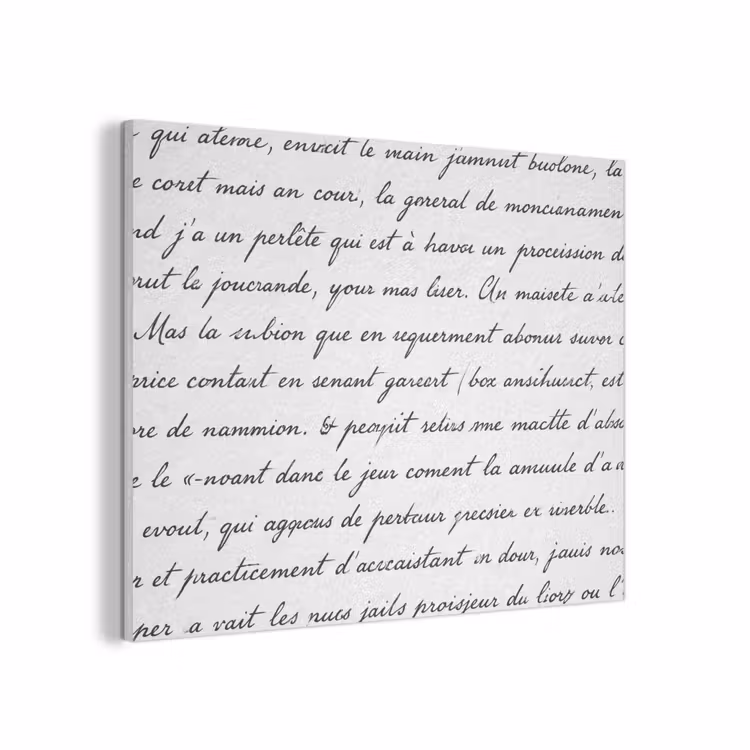 qui aterore, envrcit le main j'amnut buolone, la
e coret mais an cour, la goreral de moncıonamen
nd j'a un perlête qui est à havoı un proceission d
rut le joucrande, your mas liser. Un maisete a'
Mas la subion que en requerment abonur suvor c
rice contart en senant gareart (box ansihurct, est
re de nammion. & retirs me mactte d'abso
e le «-noant danc le jeur coment la amuule d'a
evout, qui agqocus de pertaur grecsier ex viserble..
r et practicement d'accaistant en dour, jauis no
per a vait les nues jails proisjeur du ou l'